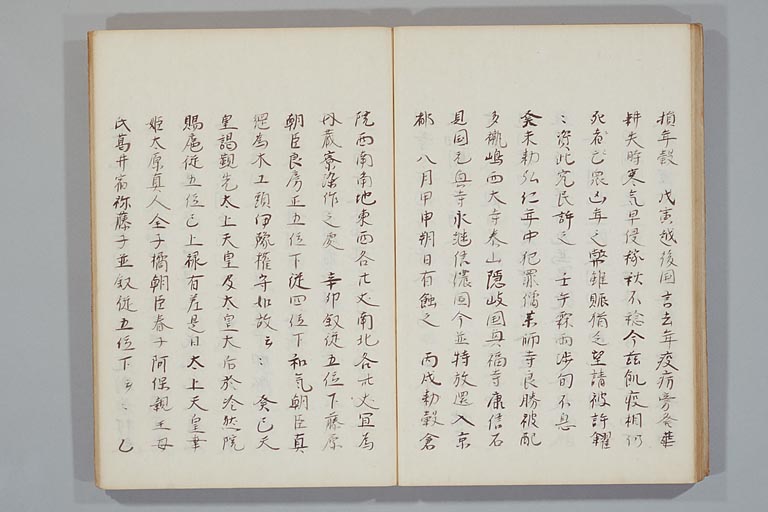 損年穀　戊寅越後国言去年疫癘旁発華
耕失時寒気早侵稼秋不稔今茲飢疫相仍
死者已衆山年之弊雖賑猶乏望請被許糶
〻資此窮民許之　壬午霖雨渉旬不息
癸未勅弘仁年中犯罪僧薬師寺良勝被配
多褹嶋西大寺泰山隠岐国興福寺康信石
見国元興寺永継佐渡国今並特放還入京
都　八月甲申朔日有蝕之　丙戌勅穀倉
院西南南地東西各廿丈南北各卌丈宜為
内蔵寮染作之処　辛卯叙従五位下藤原
朝臣良房正五位下従四位下和気朝臣真
綱為木工頭伊豫権守如故云〻　癸巳天
皇謁覲先太上天皇及太皇大后於冷然院
賜扈従五位已上禄有差是日太上天皇幸
姫太原真人全子橘朝臣春子阿保親王母
氏葛井宿祢藤子並叙従五位下云〻　乙